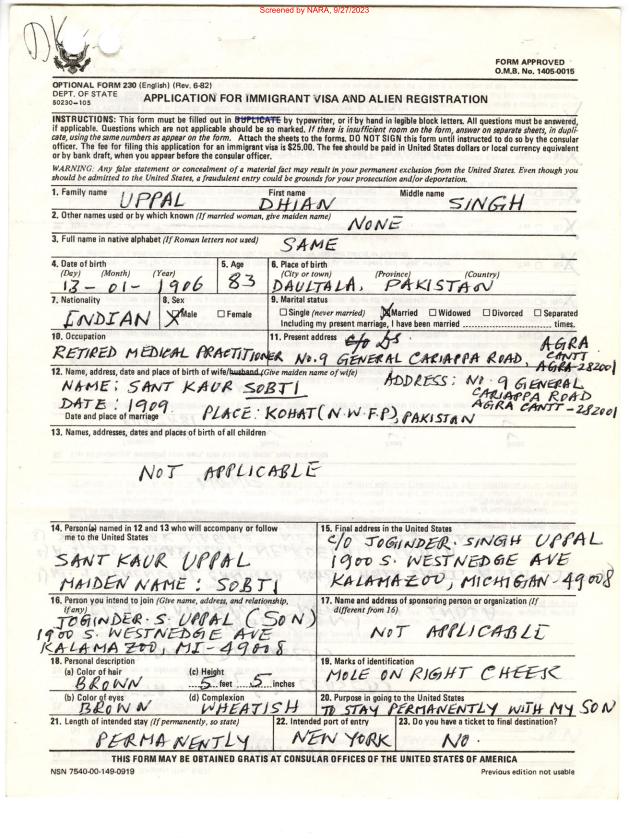 Screened by NARA, 9/27/2023
FORM APPROVED
O.M.B. No. 1405-0015
OPTIONAL FORM 230 (English) (Rev. 6-82)
DEPT. OF STATE
50230-105
APPLICATION FOR IMMIGRANT VISA AND ALIEN REGISTRATION
INSTRUCTIONS: This form must be filled out in DUPLICATE by typewriter, or if by hand in legible block letters. All questions must be answered,
if applicable. Questions which are not applicable should be so marked. If there is insufficient room on the form, answer on separate sheets, in dupli-
cate, using the same numbers as appear on the form. Attach the sheets to the forms. DO NOT SIGN this form until instructed to do so by the consular
officer. The fee for filing this application for an immigrant visa is $25.00. The fee should be paid in United States dollars or local currency equivalent
or by bank draft, when you appear before the consular officer.
WARNING: Any false statement or concealment of a material fact may result in your permanent exclusion from the United States. Even though you
should be admitted to the United States, a fraudulent entry could be grounds for your prosecution and/or deportation.
1. Family name First name Middle name
UPPAL DHIAN SINGH
2. Other names used or by which known (If married woman, give maiden name)
NONE
3. Full name in native alphabet (If Roman letters not used)
SAME
4. Date of birth 5. Age 6. Place of birth
(Day) (Month) (Year) (City or town) (Province) (Country)
13-01-1906 83 DAULTALA, PAKISTAN
7. Nationality 8. Sex 9. Marital status
INDIAN Male Female Single (never married) Married Widowed Divorced Separated
Including my present marriage, I have been married ........ times.
10. Occupation 11. Present address
RETIRED MEDICAL PRACTITIONER NO.9 GENERAL CARIAPPA ROAD, AGRA CANTT AGRA-282001
12. Name, address, date and place of birth of wife/husband (Give maiden name of wife)
NAME: SANT KAUR SOBTI ADDRESS: NO. 9 GENERAL
CARIAPPA ROAD
DATE: 1909 PLACE: KOHAT (N.W.F.P), PAKISTAN AGRA CANTT-282001
Date and place of marriage
13. Names, addresses, dates and places of birth of all children
NOT APPLICABLE
14. Person(s) named in 12 and 13 who will accompany or follow
me to the United States
SANT KAUR UPPAL
MAIDEN NAME: SOBTI
15. Final address in the United States
C/O JOGINDER. SINGH UPPAL
1900 S. WESTNEDGE AVE
KALAMAZOO, MICHIGAN-49008
16. Person you intend to join (Give name, address, and relationship,
if any)
JOGINDER S. UPPAL (SON)
1900 S. WESTNEDGE AVE
KALAMAZOO, MI-49008
17. Name and address of sponsoring person or organization (If
different from 16)
NOT APPLICABLE
18. Personal description
(a) Color of hair (c) Height
BROWN 5 feet 5 inches
(b) Color of eyes (d) Complexion
BROWN WHEATISH
19. Marks of identification
MOLE ON RIGHT CHEEK
20. Purpose in going to the United States
TO STAY PERMANENTLY WITH MY SON
21. Length of intended stay (If permanently, so state) 22. Intended port of entry 23. Do you have a ticket to final destination?
PERMANENTLY NEW YORK NO.
THIS FORM MAY BE OBTAINED GRATIS AT CONSULAR OFFICES OF THE UNITED STATES OF AMERICA
NSN 7540-00-149-0919 Previous edition not usable